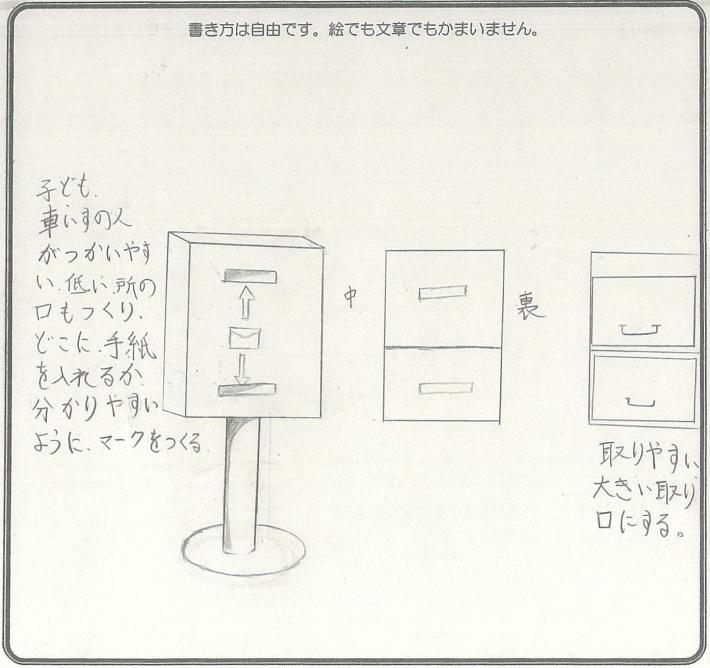 書き方は自由です。絵でも文章でもかまいません。
子ども、
車いすの人
がつかいやす
い、低い所の
口もつくり、
どこに、手紙
を入れるか、
分かりやすい
ように、マークをつくる。
中
裏
取りやすい、
大きい取り
口にする。